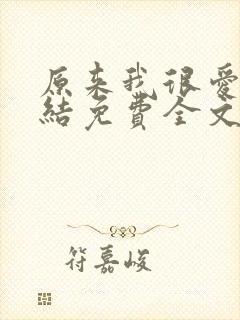 原来我很爱
结免费全文
符嘉峻